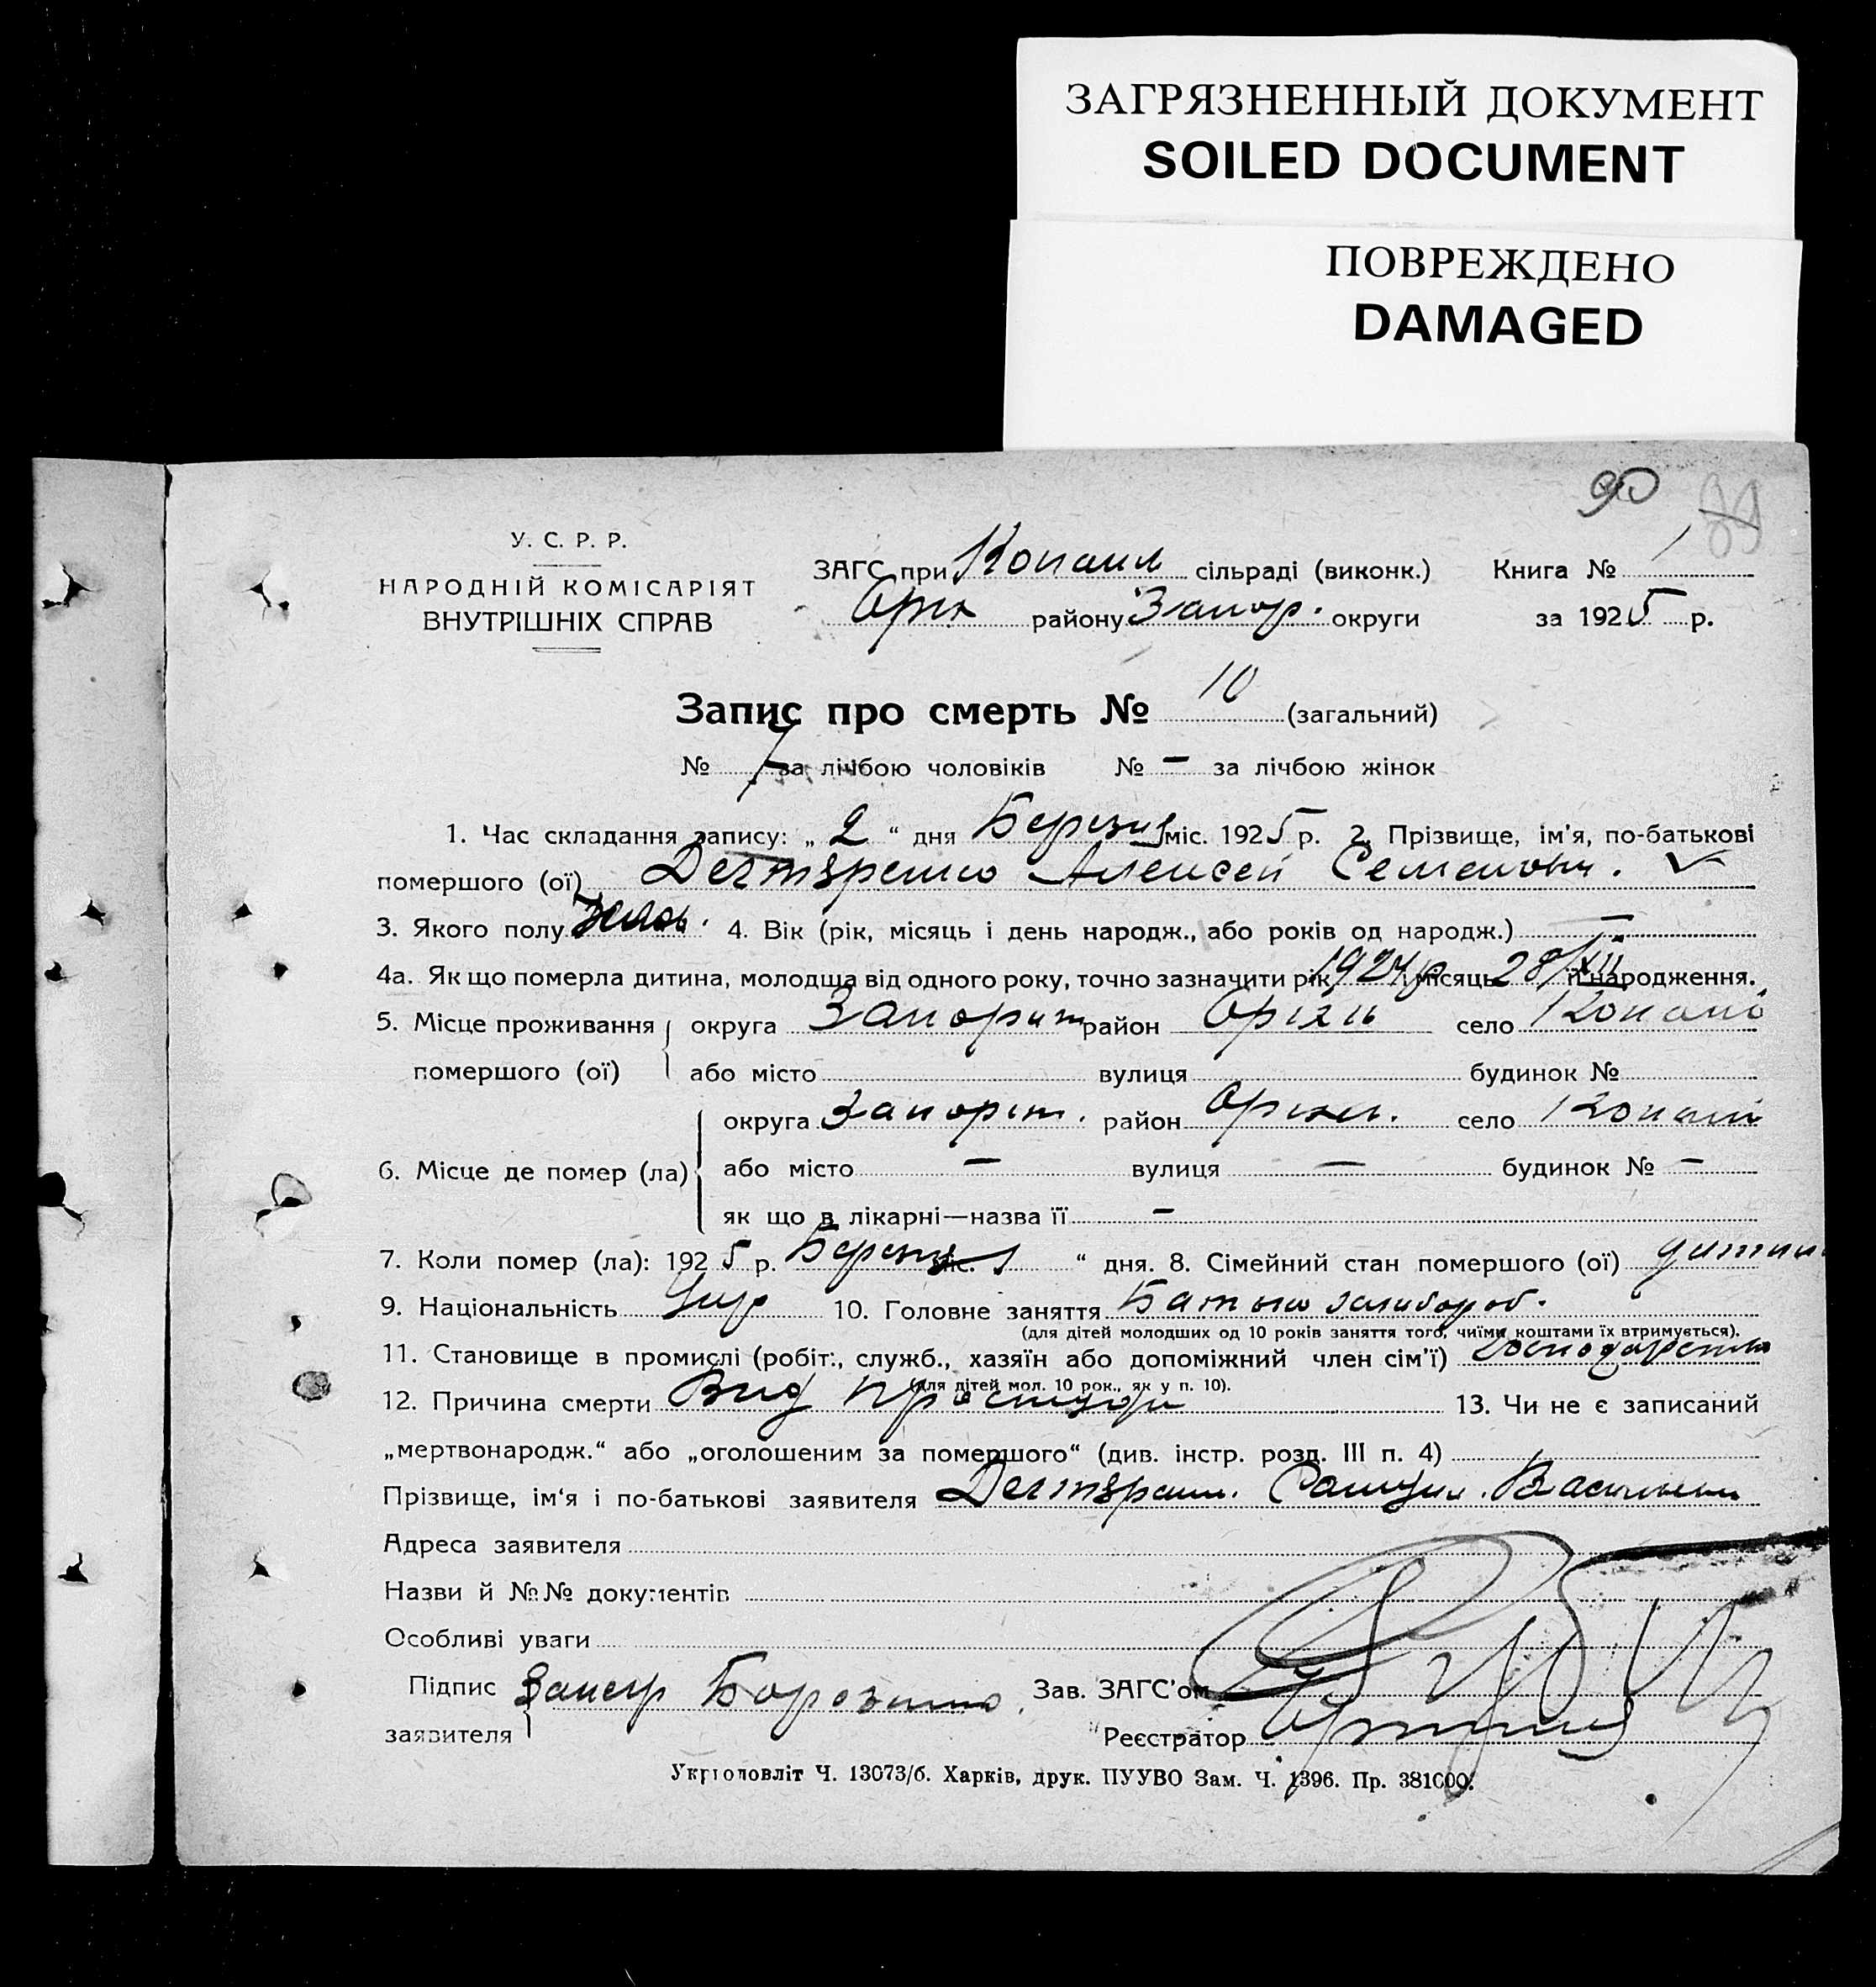 ЗАГРЯЗНЕННЫЙ ДОКУМЕНТ
SOILED DOCUMENT
ПОВРЕЖДЕНО
DAMAGED
90
89
У. С. Р. Р.
НАРОДНІЙ КОМІСАРІЯТ
ВНУТРІШНІХ СПРАВ
ЗАГС при Копань сільраді (виконк.) Книга № 1
Оріх району Запор. округи за 1925 р.
Запис про смерть № 10 (загальний)
№ 7 за лічбою чоловіків № – за лічбою жінок
1. Час складання запису: „2“ дня Березня міс. 1925 р. 2. Прізвище, ім'я, по-батькові
помершого (ої) Алексей Семенович. ✓
3. Якого полу 4. Вік (рік, місяць і день народж., або років од народж.) —
4а. Як що померла дитина, молодша від одного року, точно зазначити рік 1924 р і місяць 28/XII її народження.
5. Місце проживання округа Запоріж район Оріхів село Копані
помершого (ої) або місто вулиця будинок №
округа Запоріж. район Оріхів. село Копані
6. Місце де помер (ла) або місто — вулиця — будинок № —
як що в лікарні—назва її —
7. Коли помер (ла): 1925 р. Березня міс. 1 “ дня. 8. Сімейний стан помершого (ої) дитина
9. Національність Укр 10. Головне заняття Батько хлібороб.
(для дітей молодших од 10 років заняття того, чиїми коштами їх втримується).
11. Становище в промислі (робіт., служб., хазяїн або допоміжний член сім'ї)
(для дітей мол. 10 рок., як у п. 10).
12. Причина смерти Від простуди 13. Чи не є записаний
„мертвонародж.“ або „оголошеним за помершого“ (див. інстр. розд. III п. 4)
Прізвище, ім'я і по-батькові заявителя
Адреса заявителя
Назви й №№ документів
Особливі уваги
Підпис заявителя Зав. ЗАГС'ом
Реєстратор
Укрголовліт Ч. 13073/б. Харків, друк. ПУУВО Зам. Ч. 1396. Пр. 381000.